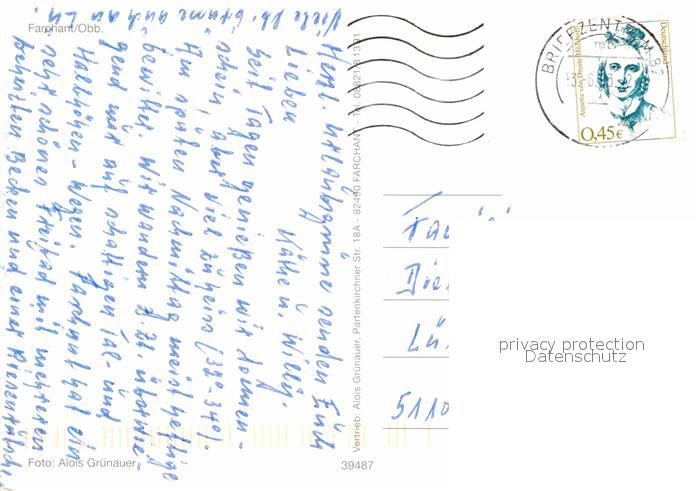 Viele lb. Grüße auch an
Herzl. Urlaubsgrüße senden Euch
Lieben Käthe u. Willy.
Seit Tagen genießen wir Sonnen-
schein, aber viel zu heiß (32°-34°.
Am späten Nachmittag meist heftige
Gewitter. Wir wandern z.Zt. überwie-
gend nur auf schattigen Tal- und
Halbhöhen-Wegen. Farchant hat ein
sehr schönes Freibad mit mehreren
beheizten Becken und einer Riesenrutsche.
Farchant/Obb.
Foto: Alois Grünauer
39487
Vertrieb: Alois Grünauer, Partenkirchner Str. 18A - 82490 FARCHANT - Tel. 08821/61391
BRIEFZENTRUM 82
Deutschland
Annette von Droste-Hülshoff
0,45 €
5110
privacy protection
Datenschutz